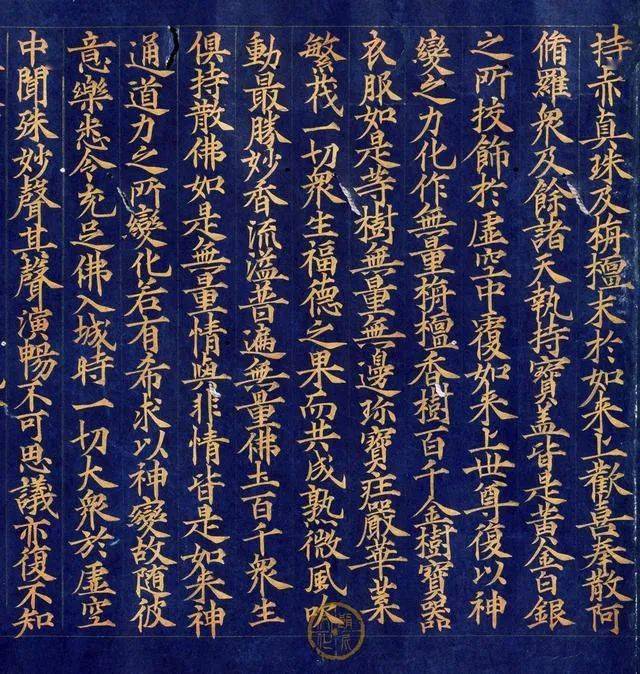 持赤真珠及栴檀末於如来上歡喜奉散阿
脩羅衆及餘諸天執持寶盖皆是黄金白銀
之所挍飾於虛空中覆如来上世尊復以神
變之力化作無量栴檀香樹百千金樹寶器
衣服如是等樹無量無邊珎寶庄嚴華菓
繁茂一切衆生福德之果而共成熟微風吹
動最勝妙香流溢普遍無量佛土百千衆生
俱持散佛如是無量情與非情皆是如来神
通道力之所變化若有希求以神變故随彼
意樂悉令充足佛入城時一切大衆於虛空
中聞殊妙聲其聲演暢不可思議亦復不知